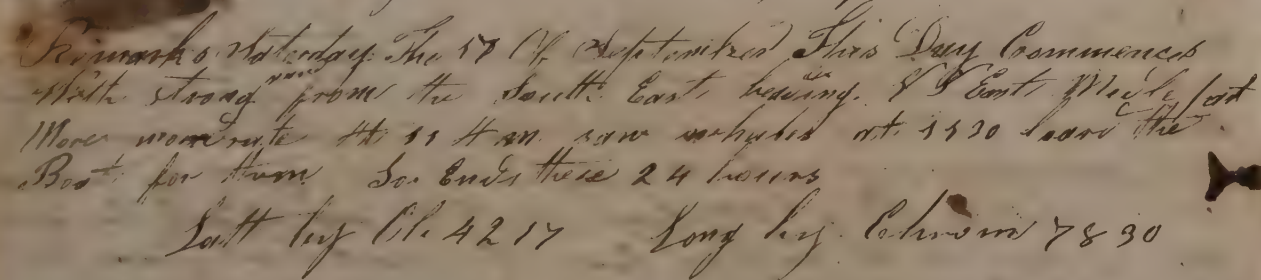 Remarks Saturday The 17 Of September This Day Commences
With strong from the South East Midle
More moderate At 11 A m saw whales at 1130 the
Boat for them So Ends these 24 hours
Latt by Ob 42 17 Long by Chrom 78 30